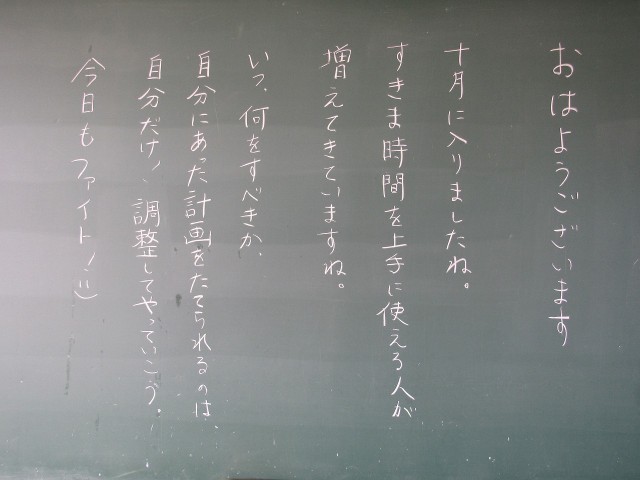 おはようございます
十月に入りましたね。
すきま時間を上手に使える人が
増えてきていますね。
いつ、何をすべきか、
自分にあった計画をたてられるのは
自分だけ!、調整してやっていこう!
今日もファイト!:)